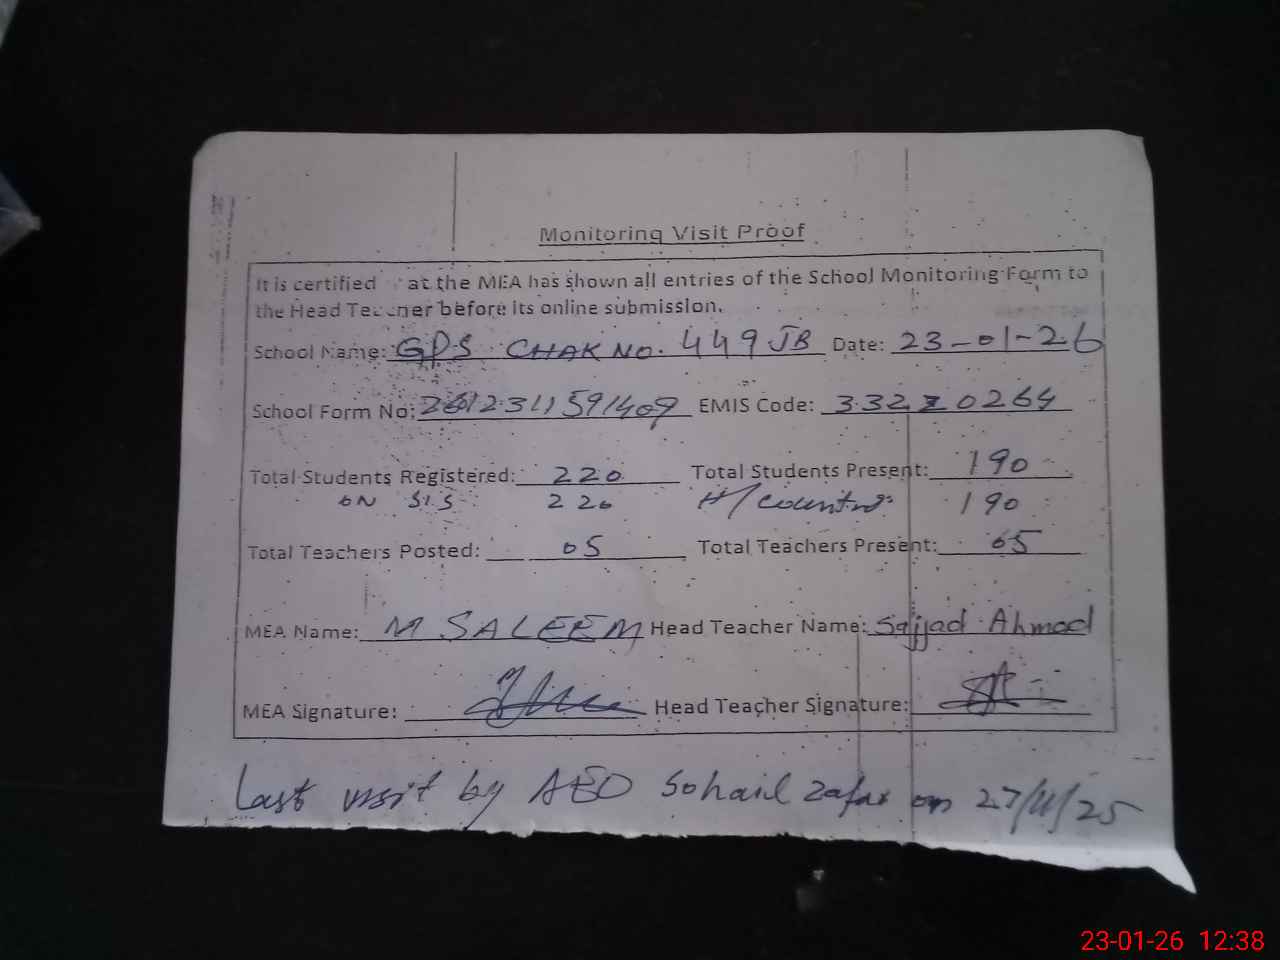 Monitoring Visit Proof
It is certified at the MEA has shown all entries of the School Monitoring Form to
the Head Teacher before its online submission.
School Name: GPS CHAK NO. 449 JB Date: 23-01-26
School Form No: EMIS Code: 33220264
Total Students Registered: 220 Total Students Present: 190
ON SIS 220 H/counted: 190
Total Teachers Posted: 05 Total Teachers Present: 05
MEA Name: M SALEEM Head Teacher Name: Sajjad Ahmad
MEA Signature: Head Teacher Signature:
Last visit by AEO Sohail Zafar on 27/11/25
23-01-26 12:38